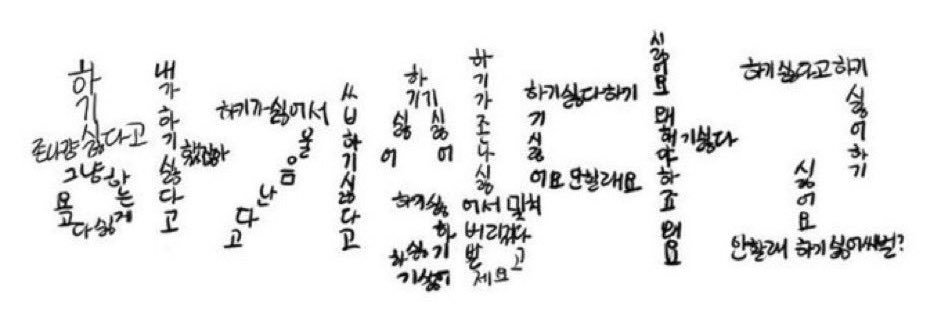 하기
존나걍싫다고
그냥하는게싫다고요
내가하기싫다고
했잖아
하기가싫어서
울음난다고
쓰ㅂ하기싫다고
하기싫어
기싫어
하기가존나싫
하기싫
하기싫어
어서
하기싫다하기
기싫
어요 안할래요
싫어요 왜해야하죠 왜요
기싫다
하기싫다고하기
싫어하기
싫어요
안할래 하기싫어씨벌?